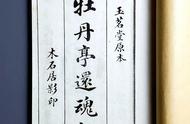 玉茗堂原本
牡丹亭還魂
木石居影印